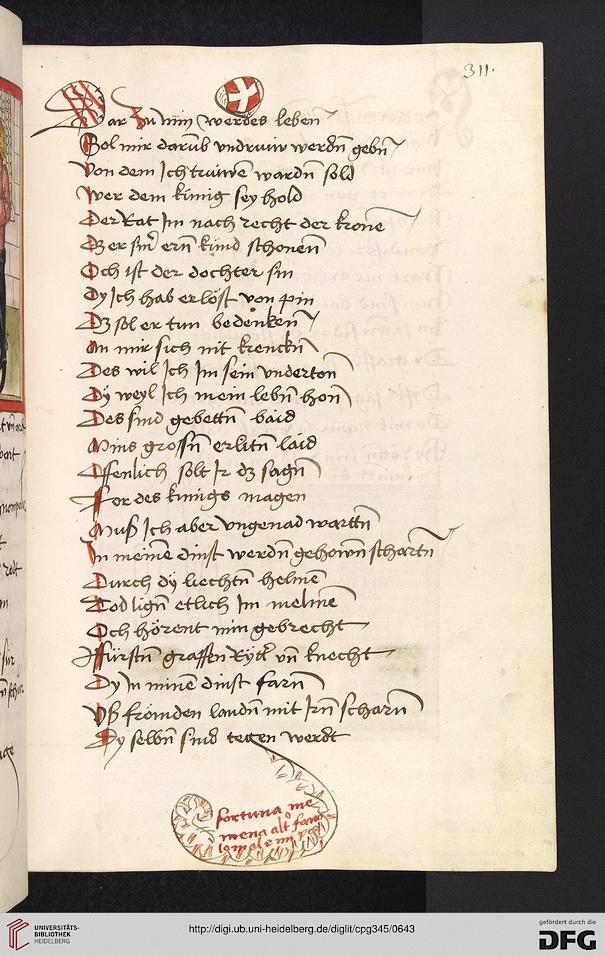 311.
Dar zu min werdes leben
Sol mir darub vndruw werdn gebn
Von dem Ich truwen wardn sold
Wer dem kunig sey hold
Der Rat Im nach recht der krone
Dz er sin ern kind schonen
Och ist der dochter sin
Dy Ich hab erlöst von pin
Dz sol er tun bedenken
An mir sich nit krenckn
Des wil Ich Im sein vnderton
Dy weyl Ich mein lebn hon
Des sind gebettn baid
Mins grossn erlitn laid
Offenlich solt Ir dz sagn
For des kinigs magen
Muß Ich aber vngenad wartn
In meine dinst werdn gehown schartn
Durch dy liechtn helme
Tod lign etlich Im melme
Och hörent min gebrecht
Fürstn graffen Rytr vn knecht
Dy In mine dinst farn
Vß frömden landn mit Irn scharn
Dy selbn sind tegen werdt
fortuna me
mena alto
UNIVERSITÄTS-
BIBLIOTHEK
HEIDELBERG
http://digi.ub.uni-heidelberg.de/diglit/cpg345/0643
gefördert durch die
DFG